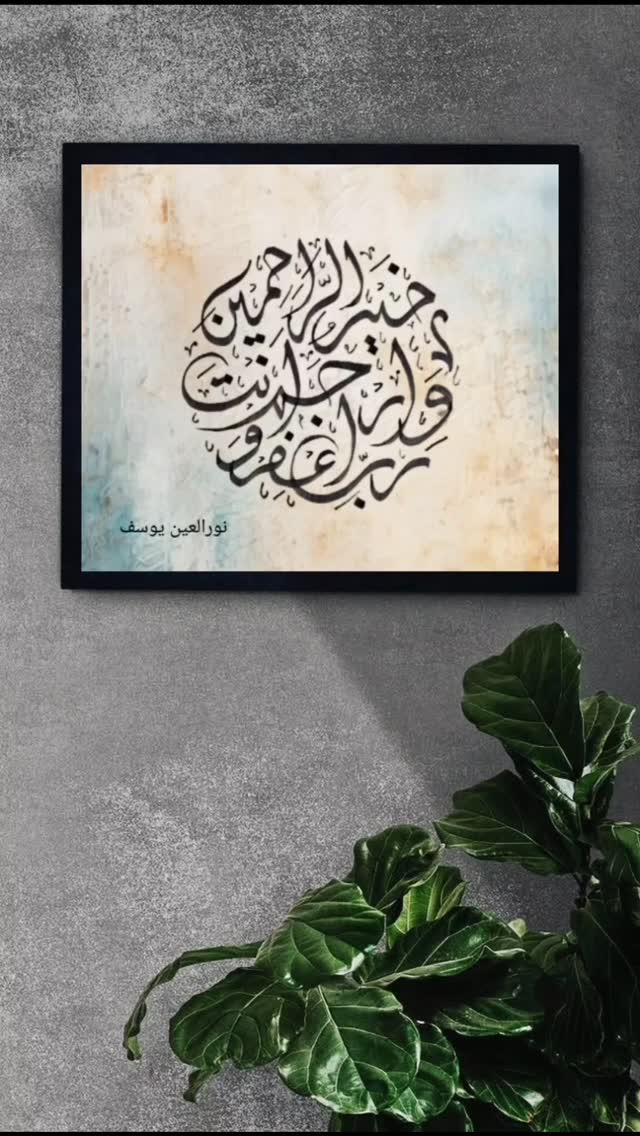 رَبِّ اغفر و
ارحم وانت
خير الرَّاحمين
نورالعين يوسف